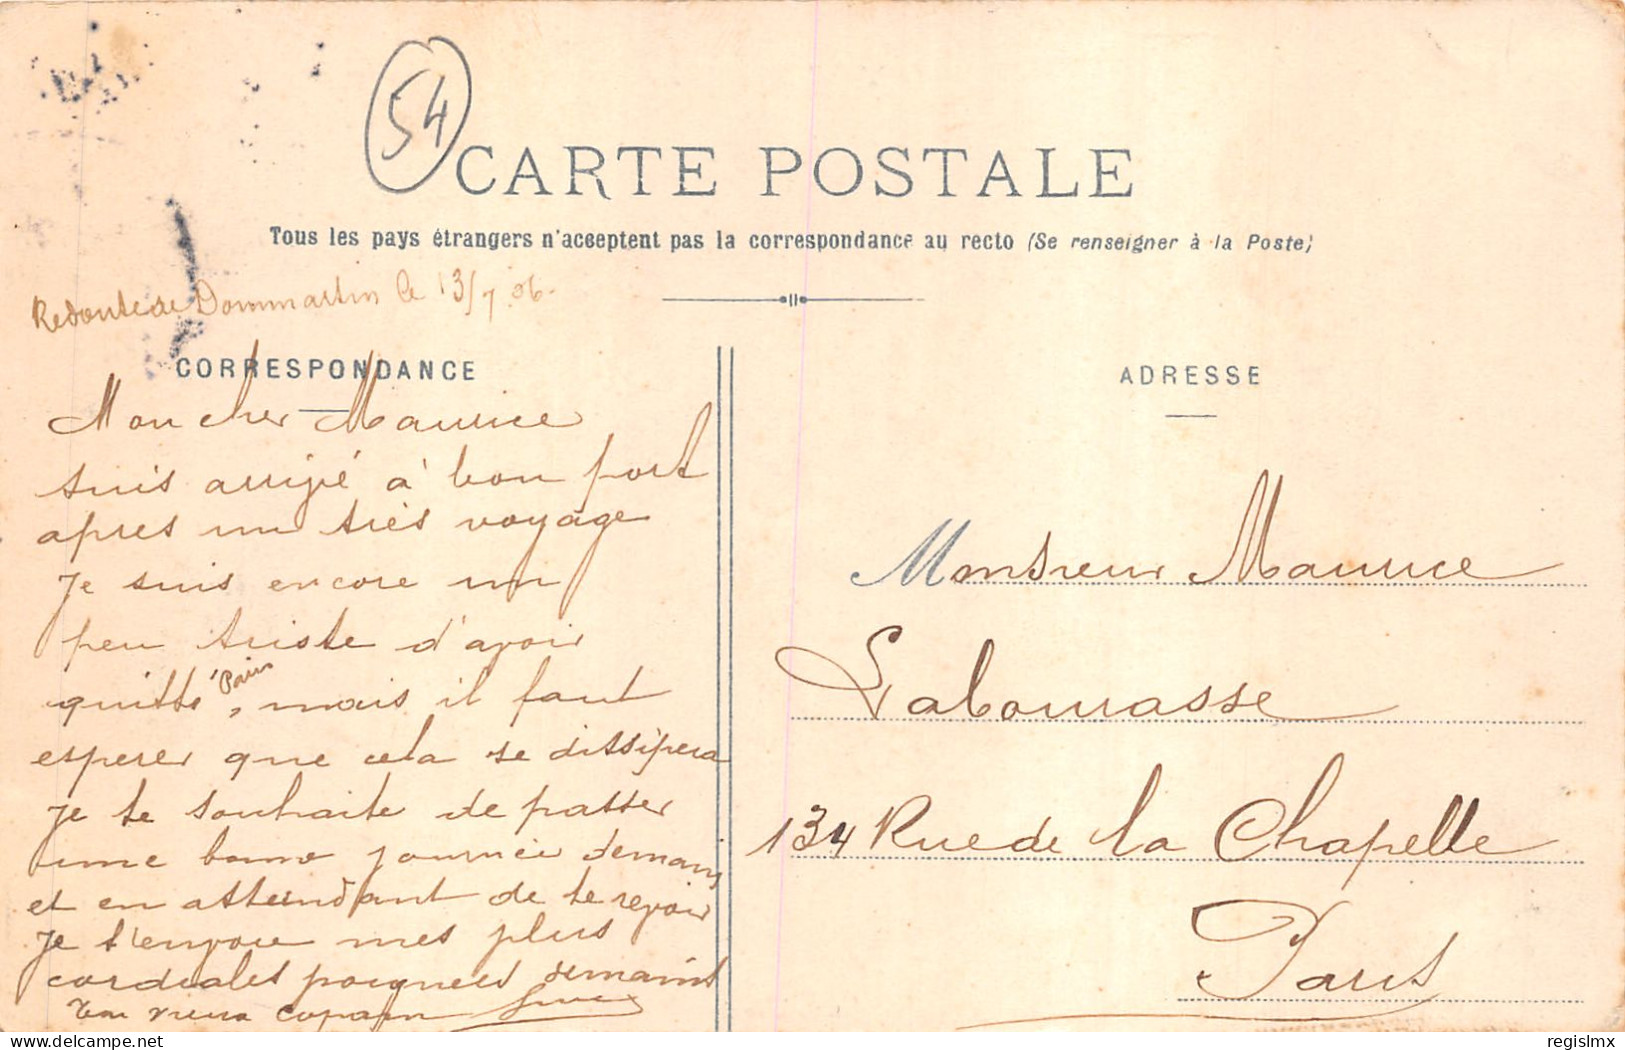 54
CARTE POSTALE
Tous les pays étrangers n'acceptent pas la correspondance au recto (Se renseigner à la Poste)
Redoute de Dommartin le 13/7 06.
CORRESPONDANCE
Mon cher Maurice
suis arrivé à bon port
apres un très voyage
Je suis encore un
peu triste d'avoir
quitté Paris, mais il faut
esperer que cela se dissipera
Je te souhaite de passer
une bonne journée demain
et en attendant de te revoir
Je t'envoie mes plus
cordiales poignees demains
Ton vieux copain
ADRESSE
Monsieur Maurice
Labourasse
134 Rue de la Chapelle
Paris
regislmx